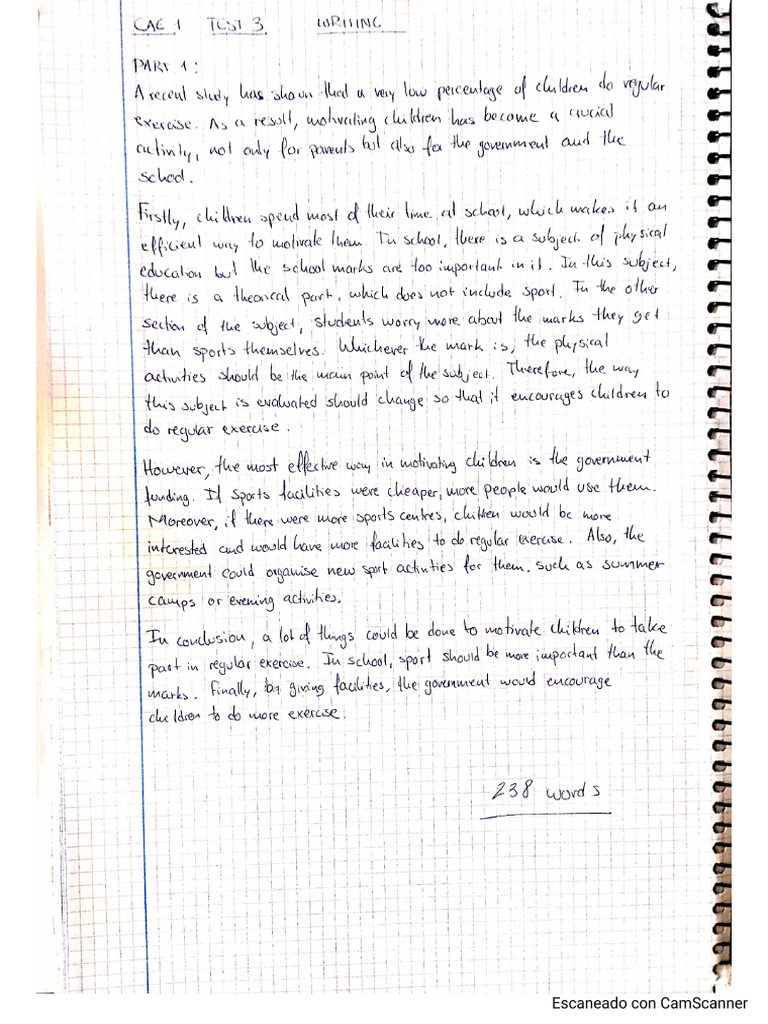 CAE 1 TEST 3 WRITING
PART 1:
A recent study has shown that a very low percentage of children do regular
exercise. As a result, motivating children has become a crucial
activity, not only for parents but also for the government and the
school.
Firstly, children spend most of their time at school, which makes it an
efficient way to motivate them. In school, there is a subject of physical
education but the school marks are too important in it. In this subject,
there is a theorical part, which does not include sport. In the other
section of the subject, students worry more about the marks they get
than sports themselves. Whichever the mark is, the physical
activities should be the main point of the subject. Therefore, the way
this subject is evaluated should change so that it encourages children to
do regular exercise.
However, the most effective way in motivating children is the government
funding. If sports facilities were cheaper, more people would use them.
Moreover, if there were more sports centres, children would be more
interested and would have more facilities to do regular exercise. Also, the
government could organise new sport activities for them. such as summer
camps or evening activities.
In conclusion, a lot of things could be done to motivate children to take
part in regular exercise. In school, sport should be more important than the
marks. Finally, by giving facilities, the government would encourage
children to do more exercise.
238 words
Escaneado con CamScanner